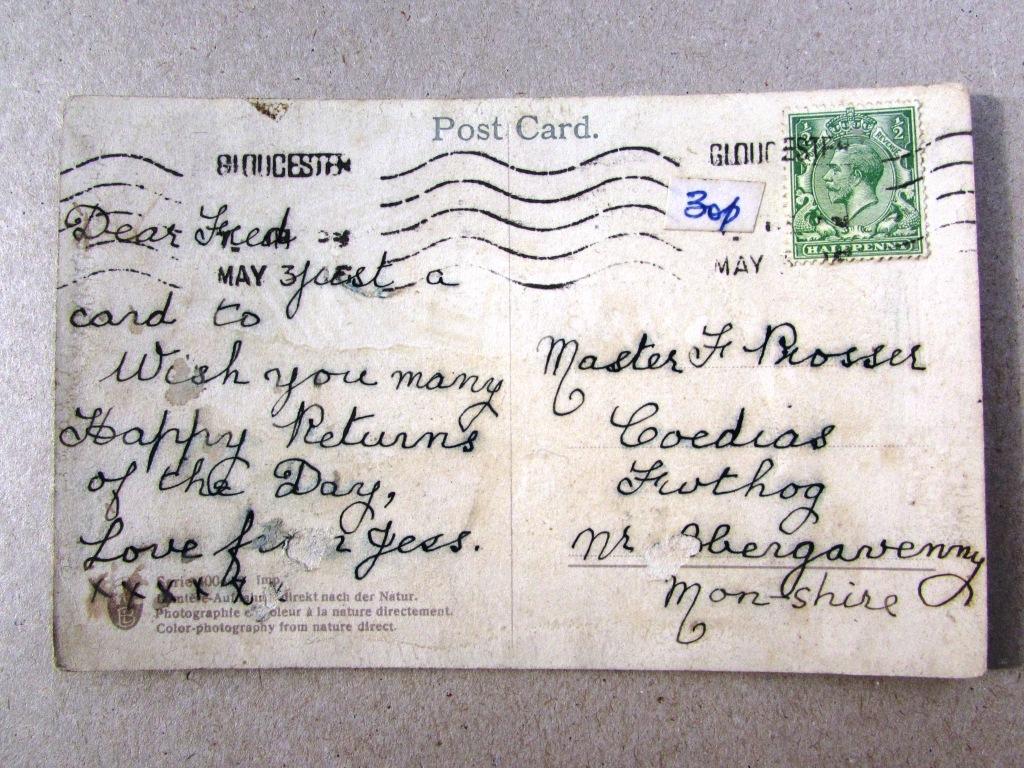 Post Card.
GLOUCESTER
GLOUCESTER
½ ½
HALFPENNY
30p
MAY 3
MAY
Dear Fred
just a
card to
Wish you many
Happy Returns
of the Day,
Love Jess.
x x x x x
Master F Prosser
Coedias
Frothog
Nr Abergavenny
Mon-shire
Serie Imp.
direkt nach der Natur.
Photographie couleur à la nature directement.
Color-photography from nature direct.